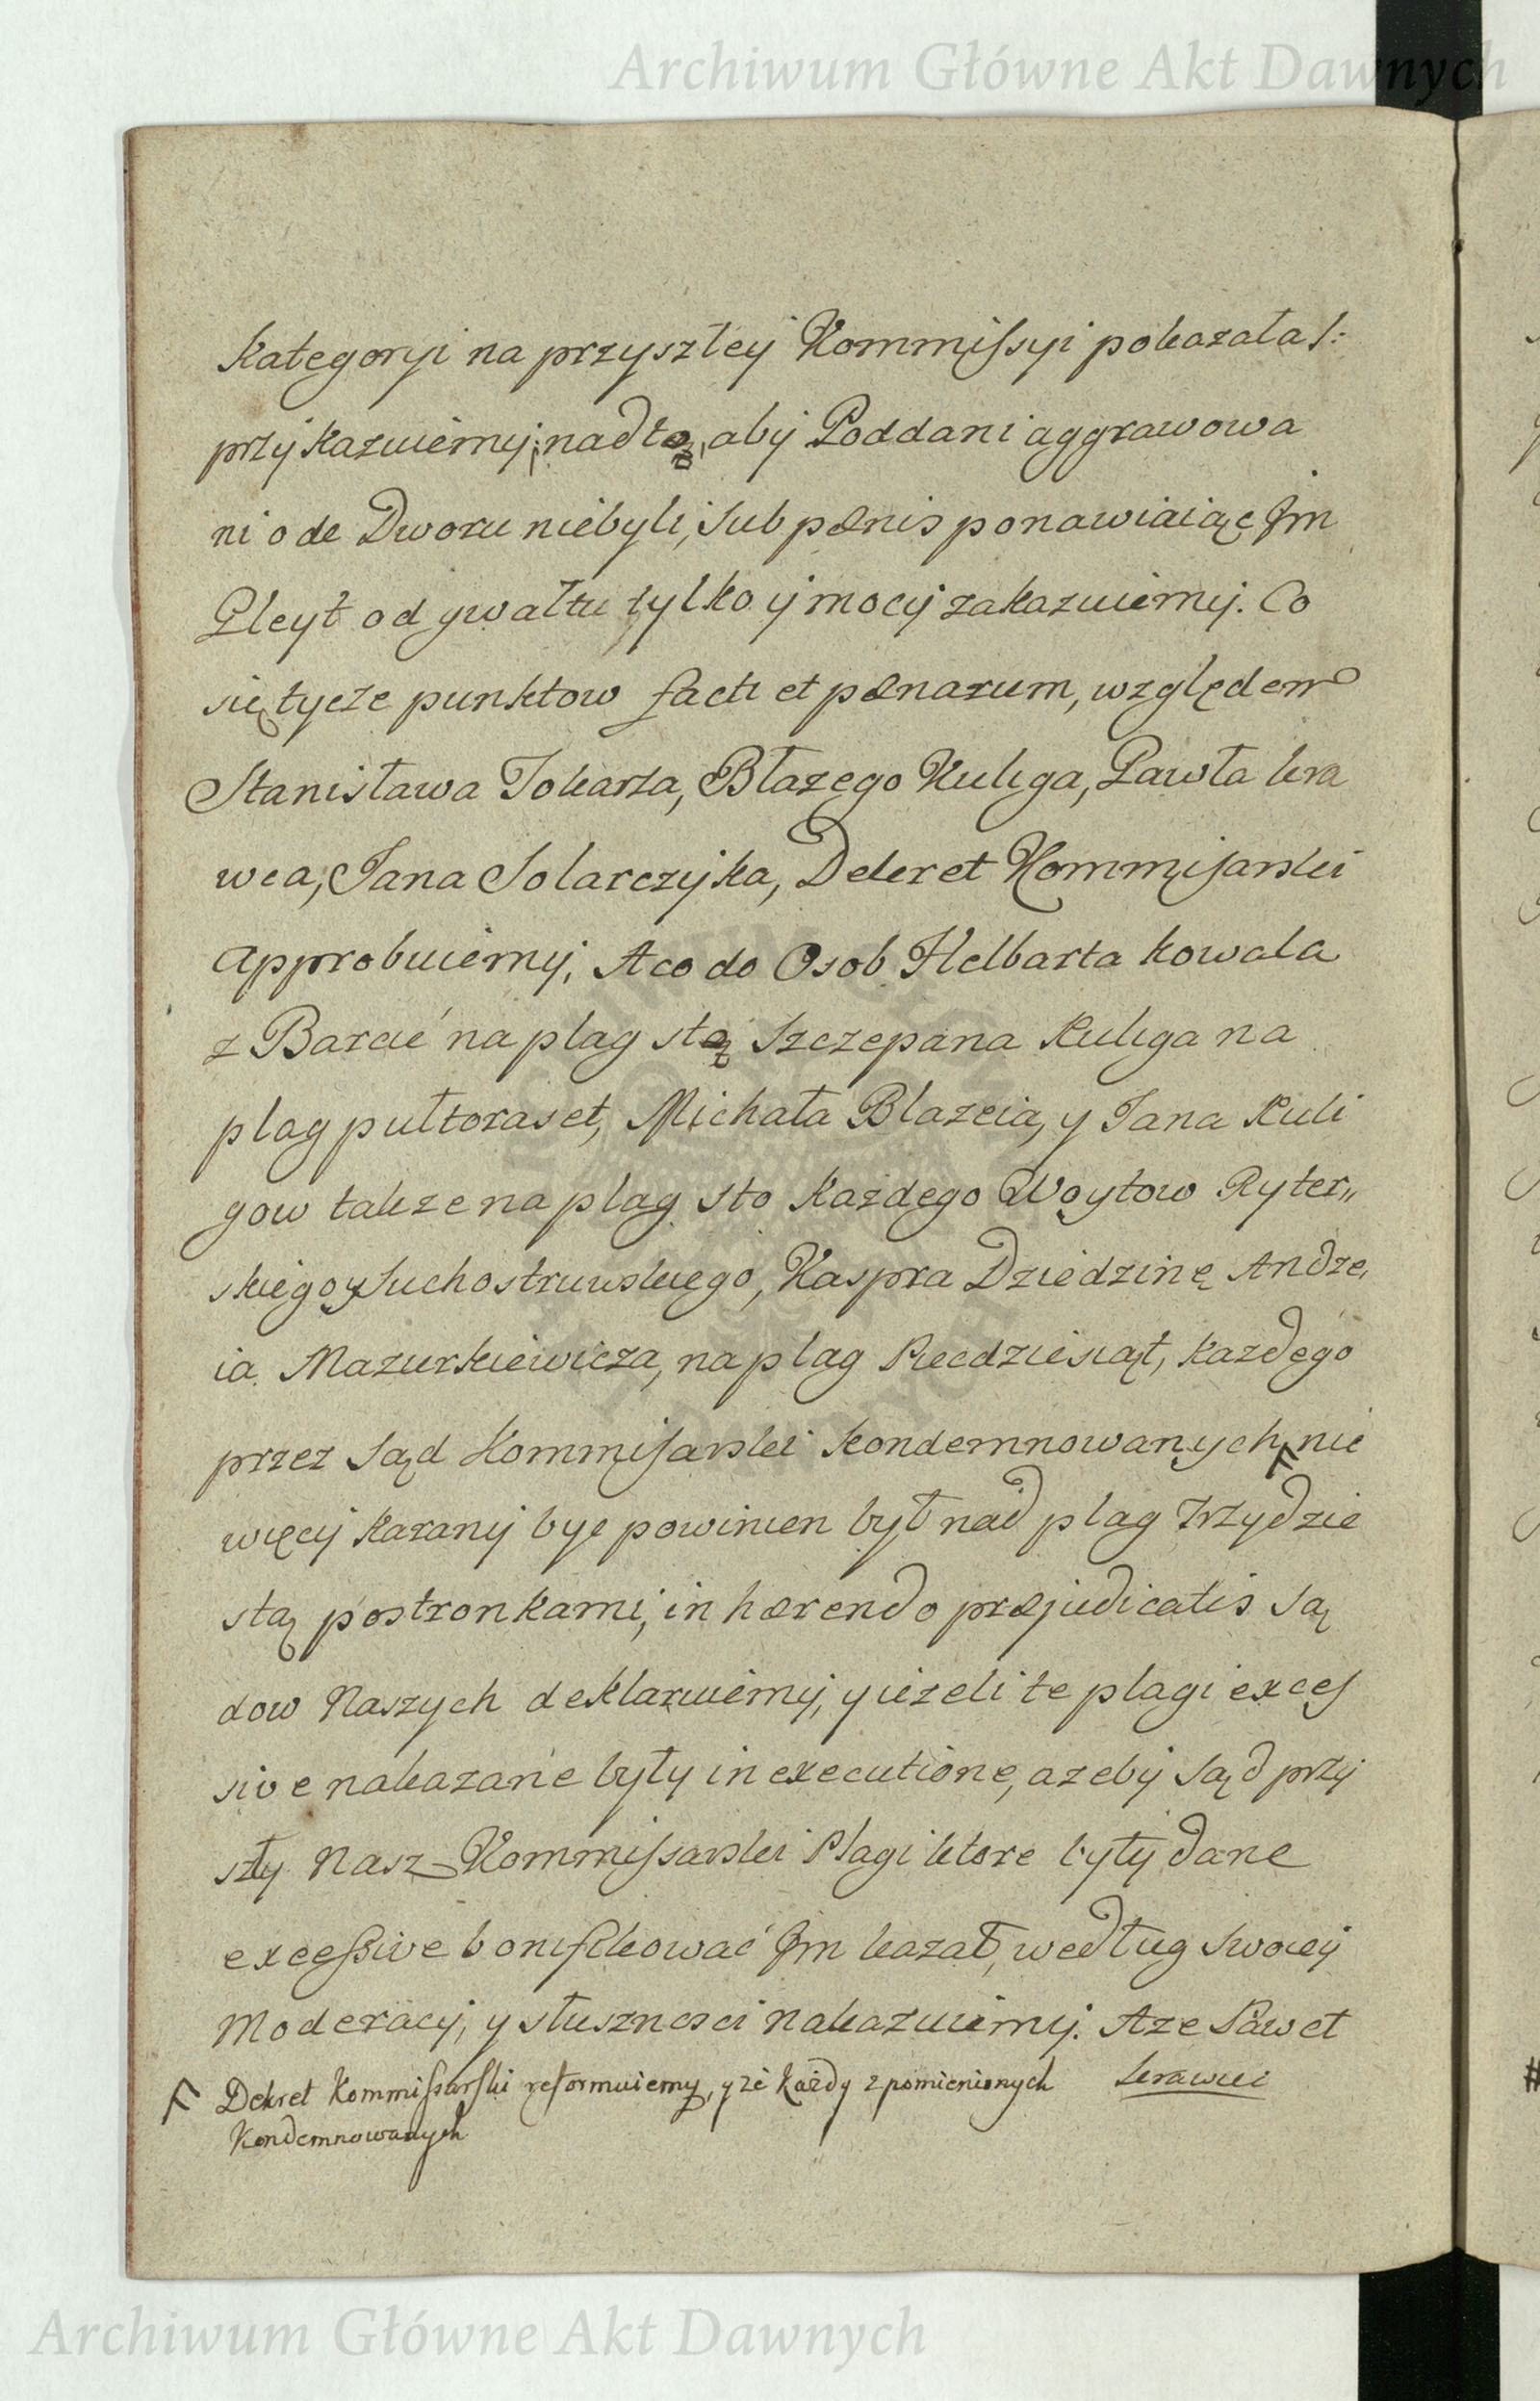 Archiwum Główne Akt Dawnych
Kategoryi na przyszłey Kommissyi pokazała /:
przykazuiemy; nadto, aby Poddani aggrawowa
ni ode Dworu niebyli, sub pœnis ponawiaiąc Jm
Gleyt od gwałtu tylko y mocy zakazuiemy. Co
się tycze punktow facti et pœnarum, względem
Stanisława Tokarza, Błazego Kuliga, Pawła kra
wca, Jana Solarczyka, Dekret Kommisarski
approbuiemy, A co do Osob Helbarta kowala
z Barcic na plag sto Szczepana Kuliga na
plag pułtoraset, Michała Blazeia, y Jana Kuli
gow takze na plag sto Kazdego Woytow Ryter„
skiego y Suchostruwskiego, Kaspra Dziedzinę Andrze,
ia Mazurkiewicza, na plag Piecdziesiąt, kazdego
przez Sąd Kommisarski kondemnowanych F nie
więcy karany byc powinien był nad plag trzydzie
stą postronkami, inhœrendo prœjudicatis Są
dow Naszych deklaruiemy, y iezeli te plagi exces
sive nakazane były in executione, azeby Sąd przy
szły Nasz Kommissarski Plagi ktore były dane
excessive bonifikować Jm kazał, według swoiey
Moderacyi, y słusznosci nakazuiemy. A ze Paweł
F Dekret Kommissarski reformuiemy, y ze każdy z pomienionych krawiec
Kondemnowanych
Archiwum Główne Akt Dawnych